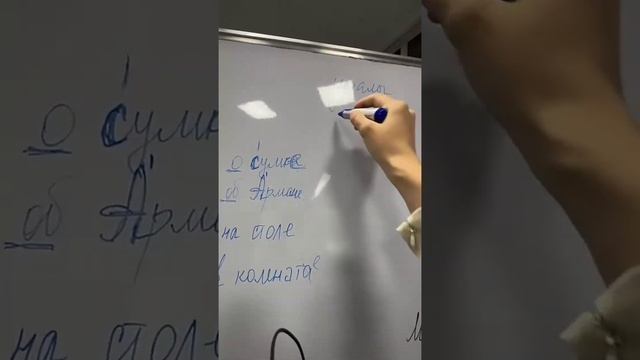 о сумке
об Армане
на столе
в комнате